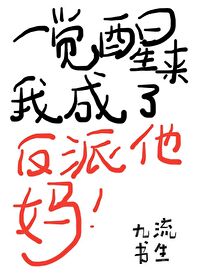 一觉醒来
我成了
反派他
妈！
九流
书生